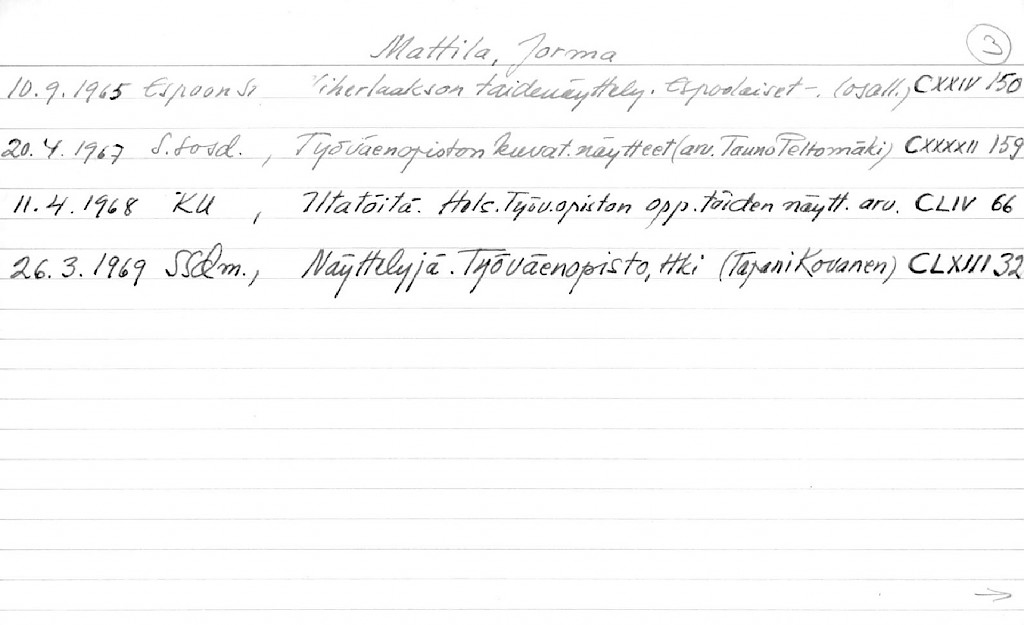 Mattila, Jorma 3
10.9.1965 Espoon S. Viherlaakson taidenäyttely. Espoolaiset -. (osall.) CXXIV 150
20.4.1967 S.sosd. , Työväenopiston kuvat.näytteet (arv. Tauno Peltomäki) CXXXXII 159
11.4.1968 KU , Iltatöitä. Hels. Työv.opiston opp.töiden näytt. arv. CLIV 66
26.3.1969 SSdm., Näyttelyjä. Työväenopisto, Hki (Tapani Kovanen) CLXIII 32
→